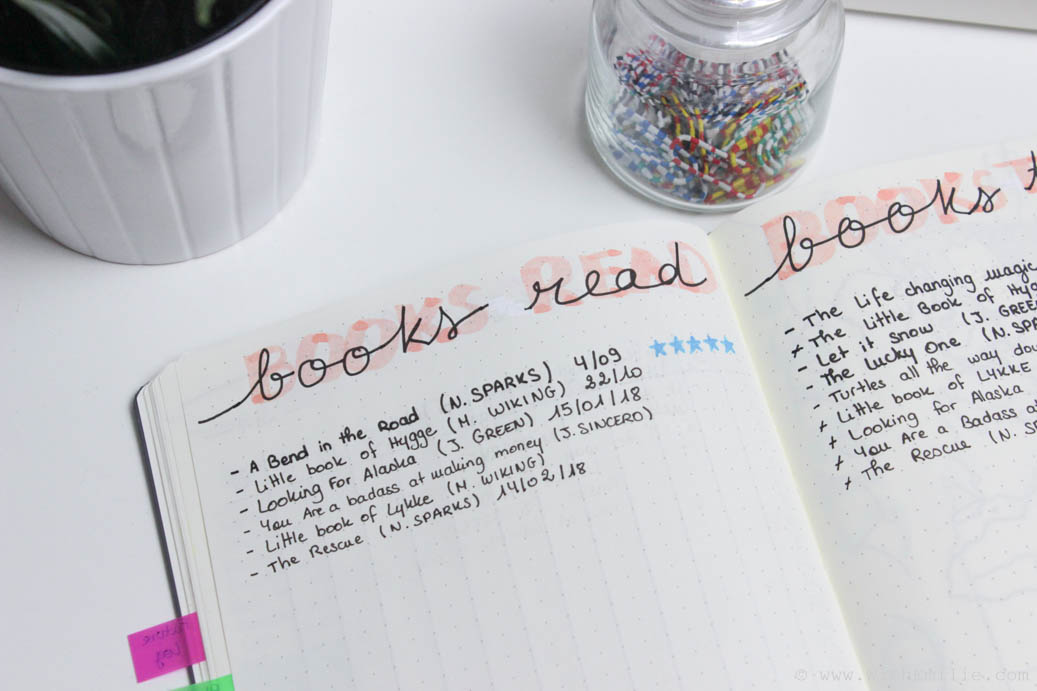 BOOKS READ
books read
- A Bend in the Road (N. SPARKS) 4/09
- Little book of Hygge (M. WIKING) 22/10
- Looking For Alaska (J. GREEN) 15/01/18
- You Are a badass at making money (J. SINCERO)
- Little book of Lykke (M. WIKING)
- The Rescue (N. SPARKS) 14/02/18
BOOKS T
books t
- The Life changing magic
+ The Little Book of Hyg
- Let it snow (J. GREE
- The Lucky One (N. SPA
- Turtles all the way dow
+ Little book of LYKKE
+ Looking for Alaska
+ You Are a Badass at
+ The Rescue (N. SP